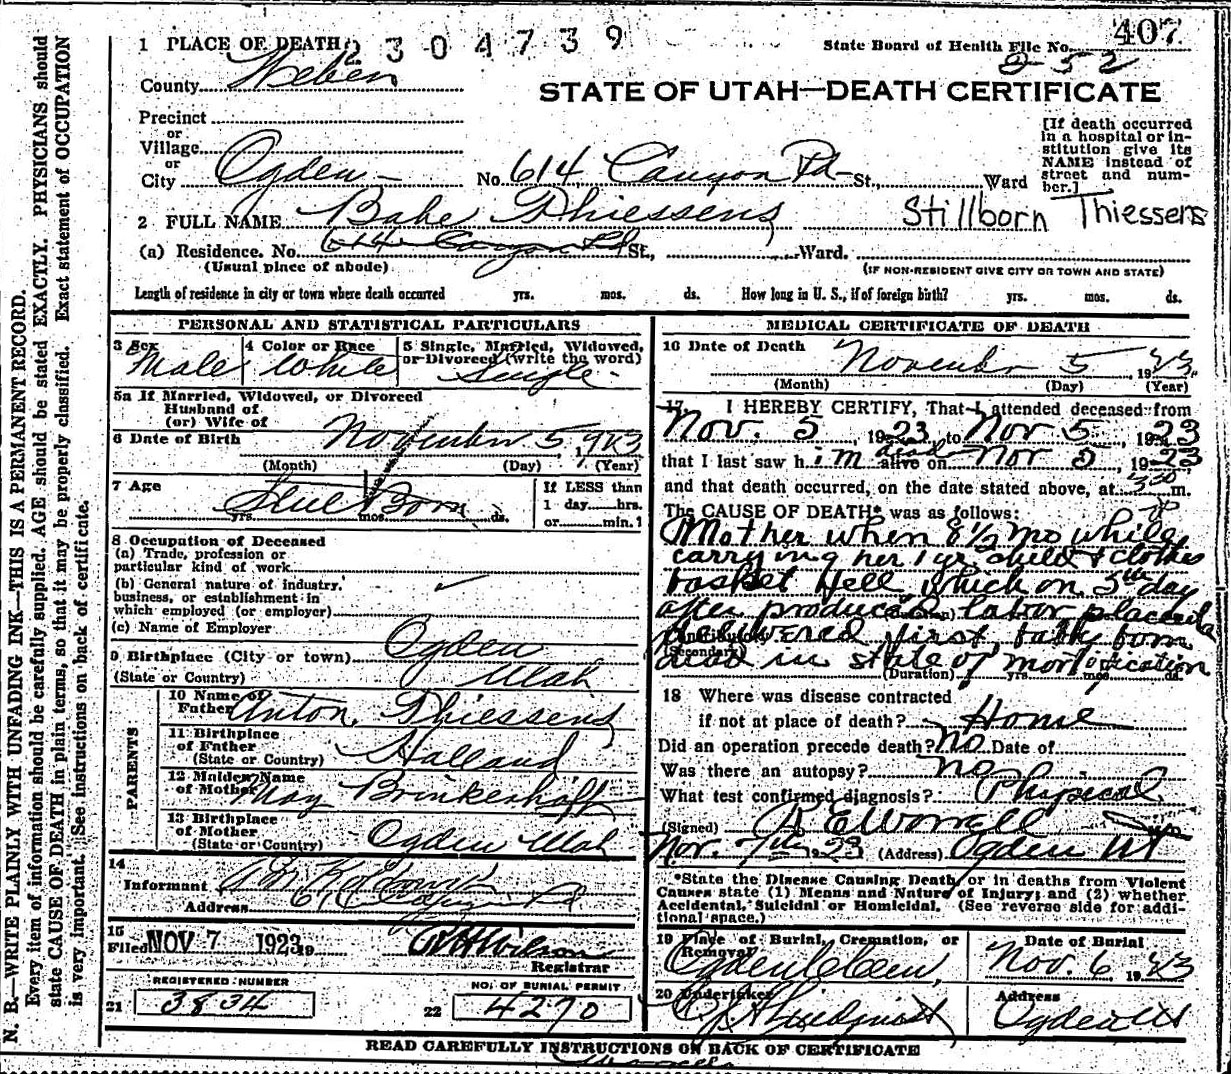 N. B.—WRITE PLAINLY WITH UNFADING INK—THIS IS A PERMANENT RECORD.
Every item of information should be carefully supplied. AGE should be stated EXACTLY. PHYSICIANS should
state CAUSE OF DEATH in plain terms, so that it may be properly classified. Exact statement of OCCUPATION
is very important. See instructions on back of certificate.
1 PLACE OF DEATH
2304739
State Board of Health File No. 407
252
County Weber
STATE OF UTAH—DEATH CERTIFICATE
Precinct
or
Village
or
City Ogden No. 614 Canyon Rd St., Ward
[If death occurred
in a hospital or in-
stitution give its
NAME instead of
street and num-
ber.]
2 FULL NAME Babe Thiessens Stillborn Thiessens
(a) Residence. No. 614 Canyon Rd St., Ward.
(Usual place of abode) (IF NON-RESIDENT GIVE CITY OR TOWN AND STATE)
Length of residence in city or town where death occurred yrs. mos. ds. How long in U. S., if of foreign birth? yrs. mos. ds.
PERSONAL AND STATISTICAL PARTICULARS
3 Sex Male
4 Color or Race White
5 Single, Married, Widowed,
or Divorced (write the word)
Single
5a If Married, Widowed, or Divorced
Husband of
(or) Wife of
6 Date of Birth November 5 1923
(Month) (Day) (Year)
7 Age Still Born
yrs. mos. ds.
If LESS than
1 day hrs.
or min.
8 Occupation of Deceased
(a) Trade, profession or
particular kind of work
(b) General nature of industry,
business, or establishment in
which employed (or employer)
(c) Name of Employer
9 Birthplace (City or town) Ogden
(State or Country) Utah
PARENTS
10 Name of
Father Anton Thiessens
11 Birthplace
of Father
(State or Country) Holland
12 Maiden Name
of Mother May Brinkerhoff
13 Birthplace
of Mother
(State or Country) Ogden Utah
14
Informant
Address
15
Filed NOV 7 1923 19 Wilson
Registrar
REGISTERED NUMBER
21 3834
NO. OF BURIAL PERMIT
22 4270
MEDICAL CERTIFICATE OF DEATH
16 Date of Death November 5 1923
(Month) (Day) (Year)
17 I HEREBY CERTIFY, That I attended deceased from
Nov. 5, 1923, to Nov 5, 1923
that I last saw him dead alive on Nov 5, 1923
and that death occurred, on the date stated above, at 330 m.
The CAUSE OF DEATH* was as follows:
Mother when 8 1/2 mo while
carrying her 1 yr. child & clothes
basket fell which on 5th day
after produced labor placenta
delivered first baby born
dead in state of mortification
Contributory
(Secondary)
(Duration) yrs. mos. ds.
18 Where was disease contracted
if not at place of death? Home
Did an operation precede death? no Date of
Was there an autopsy? no
What test confirmed diagnosis? Physical
(Signed) Worrell
Nov. 7th 1923 (Address) Ogden Ut
*State the Disease Causing Death, or in deaths from Violent
Causes state (1) Means and Nature of Injury; and (2) whether
Accidental, Suicidal or Homicidal. (See reverse side for addi-
tional space.)
19 Place of Burial, Cremation, or
Removal
Ogden
Date of Burial
Nov. 6 1923
20 Undertaker
Address
Ogden Ut
READ CAREFULLY INSTRUCTIONS ON BACK OF CERTIFICATE